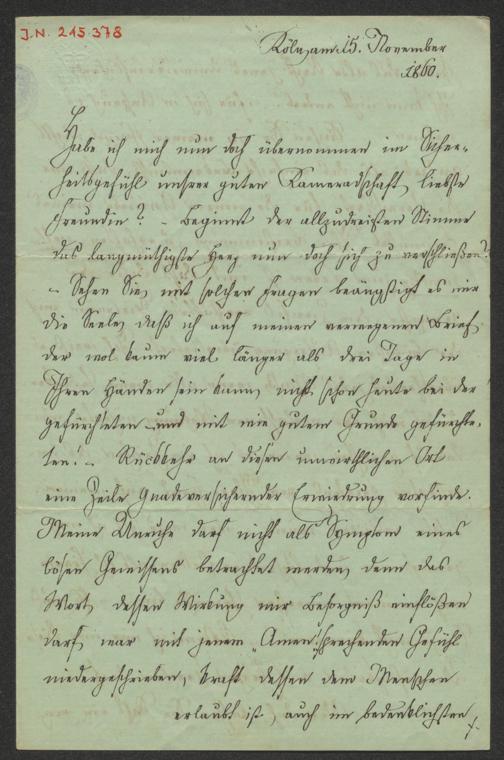 J.N. 215.378
Köln, am 15. November
1860.
Habe ich mich nun doch übernommen im Sicher-
heitsgefühl unsrer guten Kameradschaft, liebste
Freundin? – Beginnt der allzudreisten Stimme
das langmüthigste Herz nun doch sich zu verschließen?
– Sehen Sie, mit solchen Fragen beängstigt es mir
die Seele, daß ich auf meinen verwegenen Brief,
der wol kaum viel länger als drei Tage in
Ihren Händen sein kann, nicht schon heute bei der
gefürchteten – und mit wie gutem Grunde gefürchte-
ten! – Rückkehr an diesen unwirthlichen Ort
eine Zeile gnadeversichernder Erwiedrung vorfinde.
Meine Unruhe darf nicht als Symptom eines
bösen Gewissens betrachtet werden, denn das
Wort, dessen Wirkung mir Besorgniß einflößen
darf, war mit jenem „Amen“ sprechenden Gefühl
niedergeschrieben, kraft dessen dem Menschen
erlaubt ist, auch im bedenklichsten